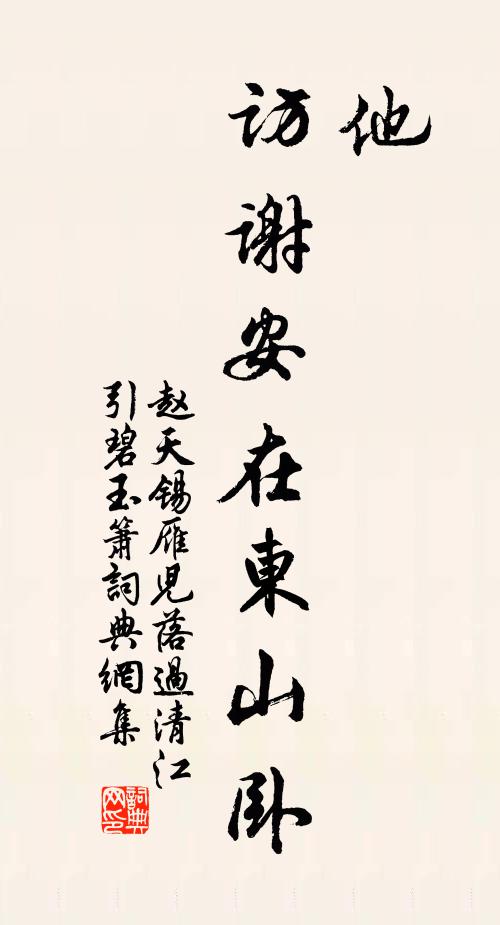 他
訪謝安在東山卧
赵天锡雁児落過清江
引碧玉箫詞典網集
詞典网印